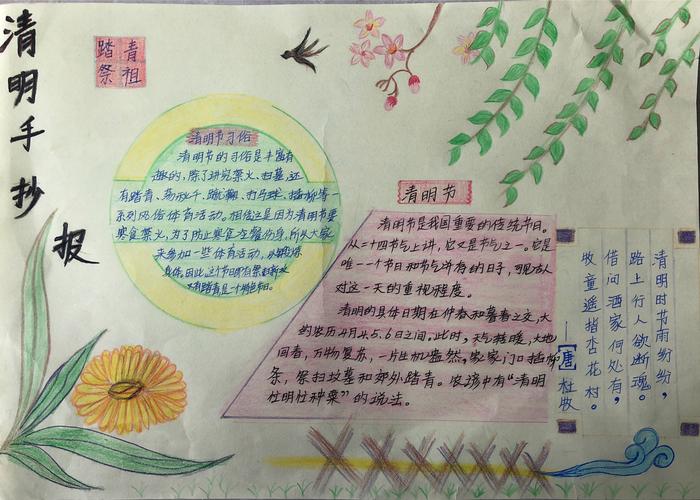 清明手抄报
踏青
祭祖
清明节习俗
清明节的习俗是丰富有
趣的，除了讲究禁火、扫墓，还
有踏青、荡秋千、蹴鞠、打马球、插柳等一
系列风俗体育活动。相传这是因为清明节要
寒食禁火，为了防止寒食冷餐伤身，所以大家
来参加一些体育活动，以锻炼
身体。因此，这个节日
清明节
清明节是我国重要的传统节日。
从二十四节气上讲，它又是节气之一。它是
唯一一个节日和节气并有的日子，可见古人
对这一天的重视程度。
清明的具体日期在仲春和暮春之交，大
约农历4月4.5.6日之间。此时，天气转暖，大地
回春，万物复苏，一片生机盎然，家家门口插柳
条，祭扫坟墓和郊外踏青。农谚中有“清明
忙明忙种菜”的说法。
清明时节雨纷纷，
路上行人欲断魂。
借问酒家何处有，
牧童遥指杏花村。
——［唐］杜牧